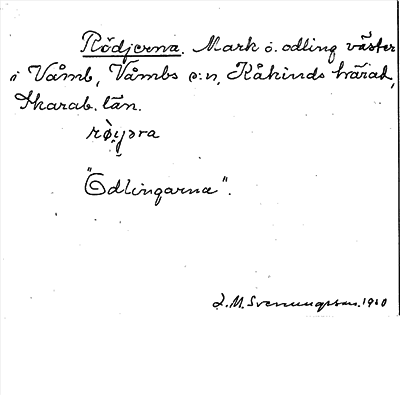 Rödjorna. Mark o. odling väster
i Våmb, Våmbs s:n, Kåkinds härad,
Skarab. län.
"Odlingarna".
1910